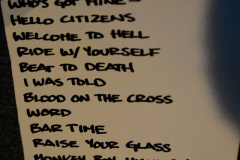 WHO'S GOT MINE
HELLO CITIZENS
WELCOME TO HELL
RIDE W/ YOURSELF
BEAT TO DEATH
I WAS TOLD
BLOOD ON THE CROSS
WORD
BAR TIME
RAISE YOUR GLASS
MONKEY BOY